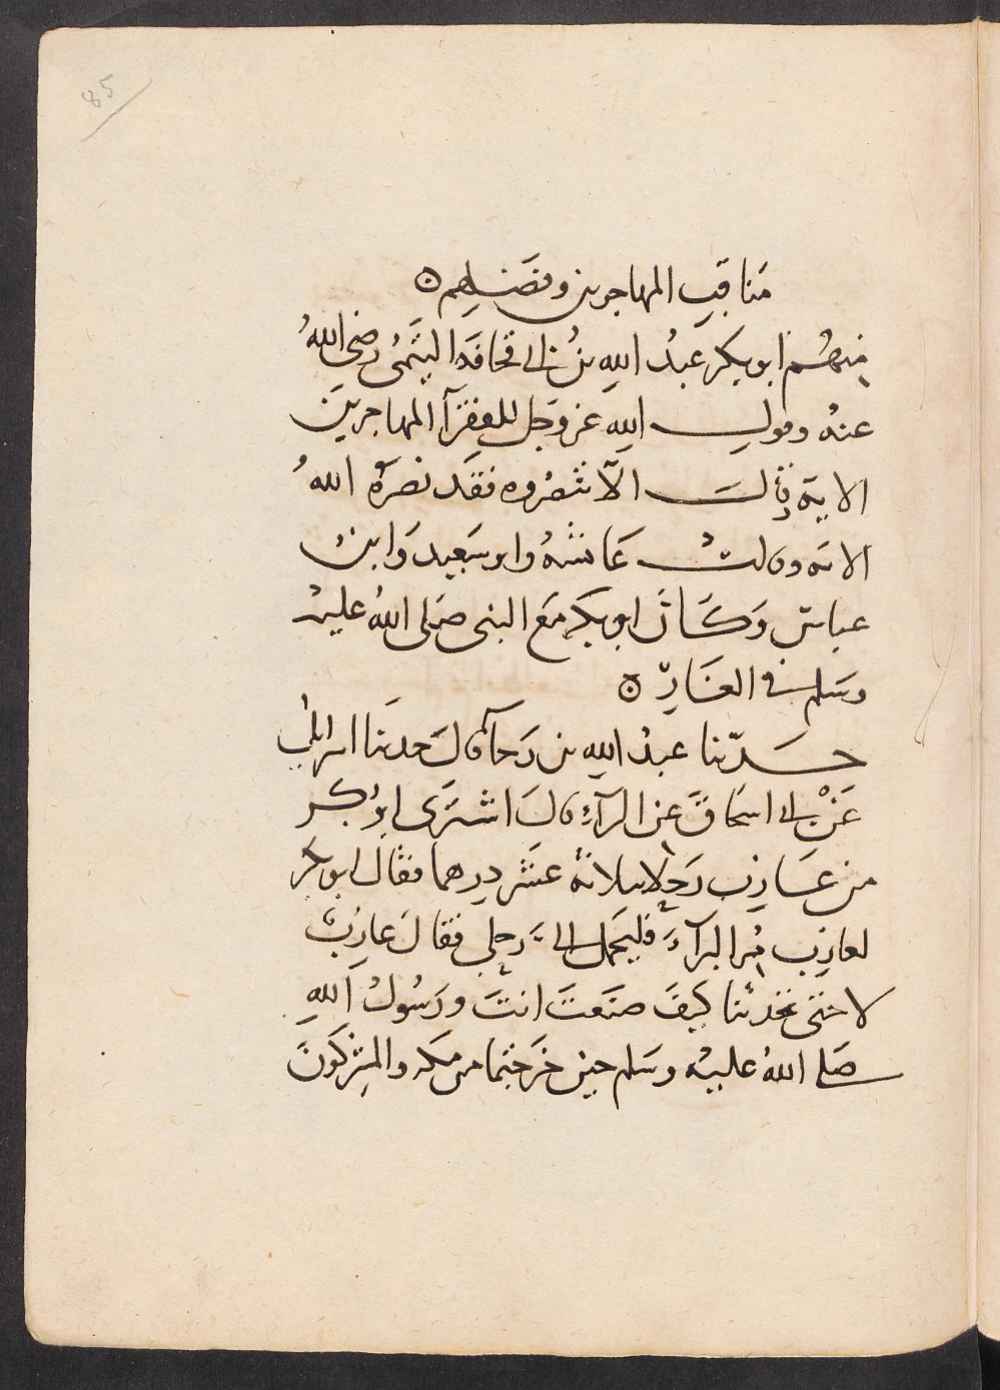 85
مناقب المهاجرين وفضلهم ه
منهم ابو بكر عبد الله بن ابي قحافة التيمي رضي الله
عنه وقول الله عز وجل للفقرآ المهاجرين
الاية وقالَ الّا تنصروه فقد نصره الله
الاية وقالت عائشة وابو سعيد وابن
عباس وكان ابو بكر مع النبي صلى الله عليه
وسلم في الغار ه
حدّثنا عبد الله بن رجآ قال حدثنا اسرائيل
عن ابي اسحاق عن البرآء قال اشترى ابو بكر
من عازب رحلا بثلاثة عشر درهما فقال ابو بكر
لعازب مُر البرآءَ فليحمل اليّ رحلي فقال عازب
لا حتى تحدثنا كيف صنعت انت ورسول الله
صلى الله عليه وسلم حين خرجتما من مكة والمشركون